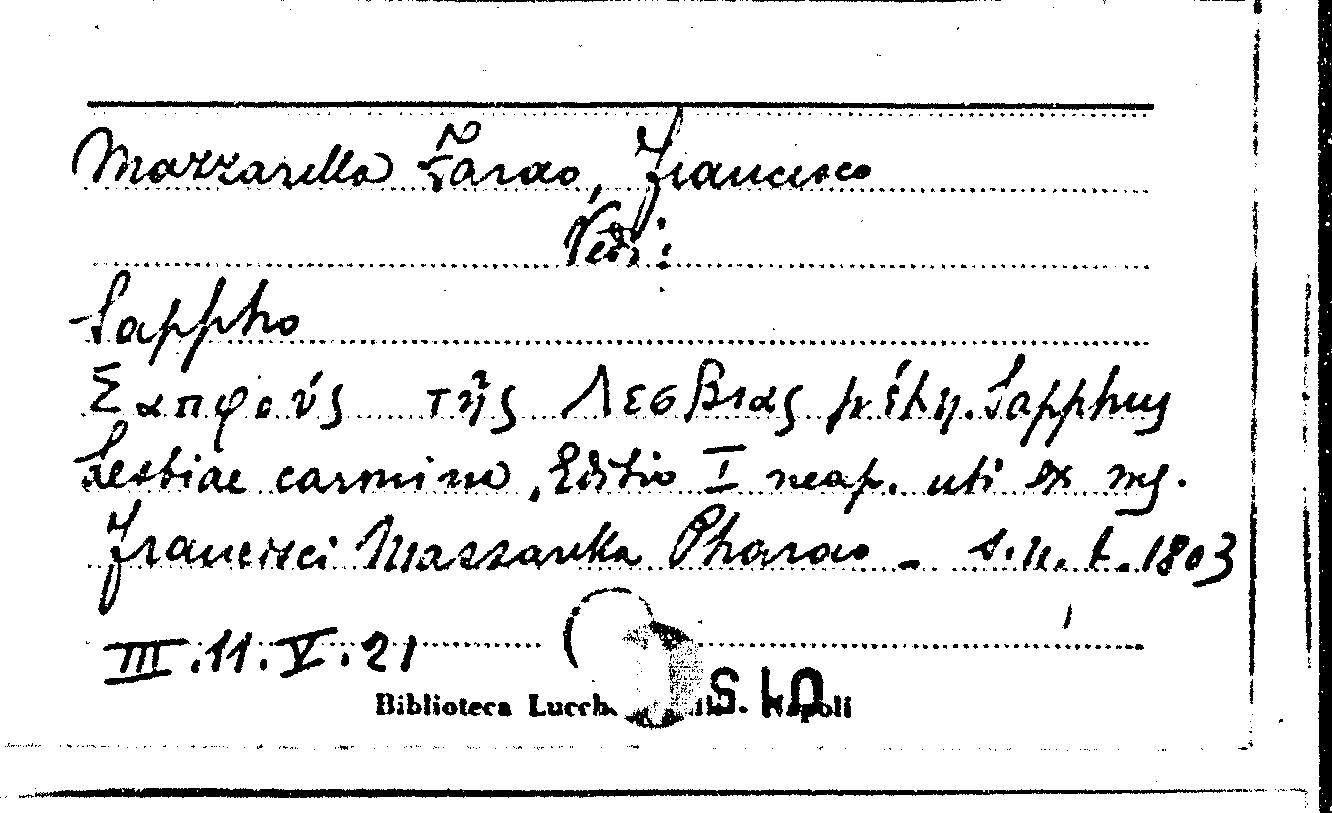 Mazzarella Farao, Francesco
Vedi:
Sappho
Σαπφούς τῆς Λεσβιας μέλη. Sapphus
Lesbiae carmina, Editio I neap. uti ex mS.
Francisci Mazzarella Pharao - s.n.t. 1803
III.11.V.21
Biblioteca Napoli